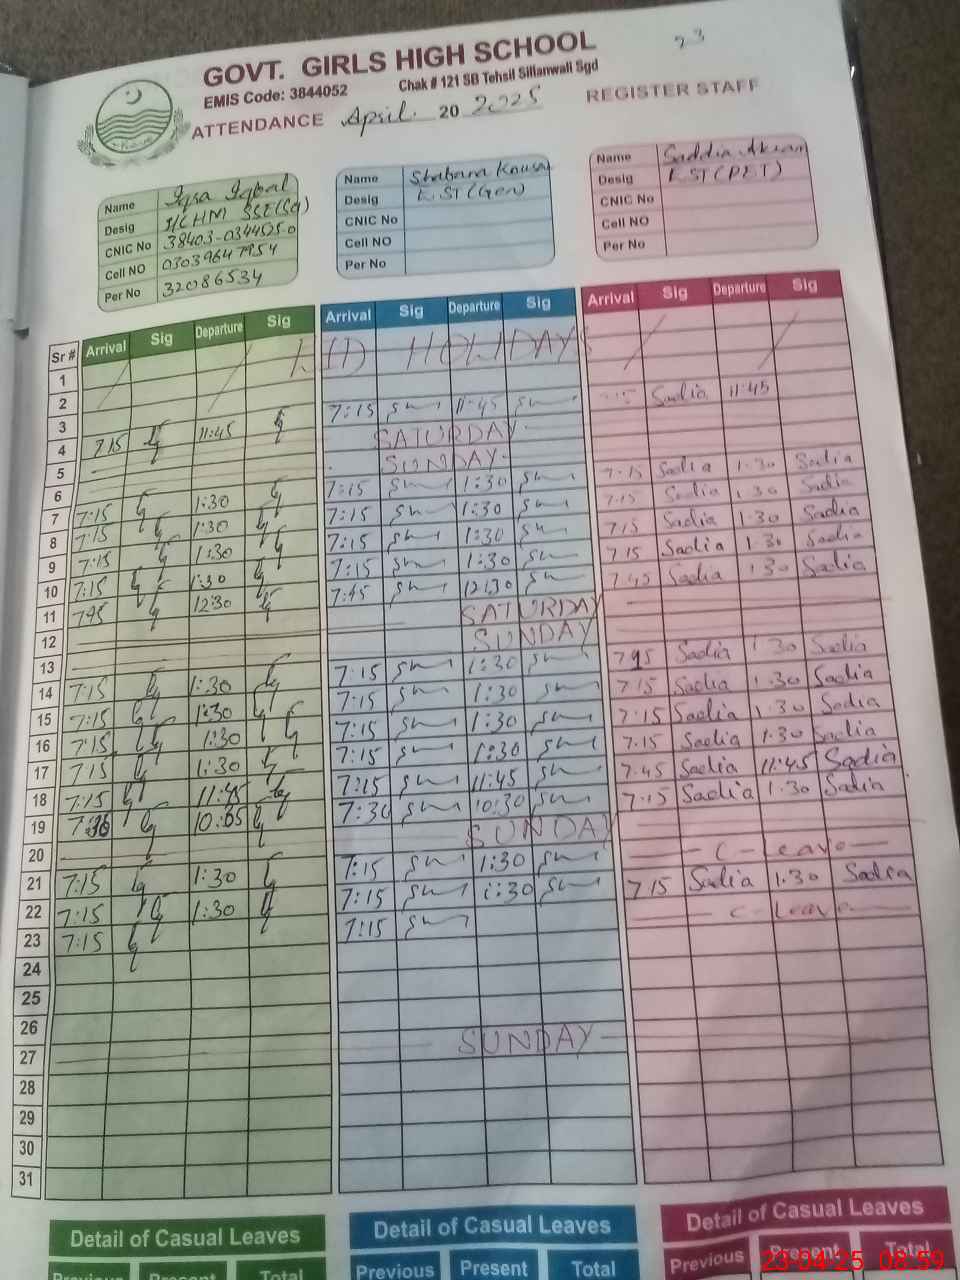 23
GOVT. GIRLS HIGH SCHOOL
EMIS Code: 3844052 Chak # 121 SB Tehsil Sillanwali Sgd
ATTENDANCE April. 20 2025 REGISTER STAFF
Name Iqra Iqbal
Desig I/C HM SSE(Sci)
CNIC No 38403-0344525-0
Cell NO 03039647954
Per No 32086534
Name Shabana Kausar
Desig EST(Gen)
CNIC No
Cell NO
Per No
Name Saddia Akram
Desig EST(PET)
CNIC No
Cell NO
Per No
Sr # Arrival Sig Departure Sig Arrival Sig Departure Sig Arrival Sig Departure Sig
1 EID HOLIDAYS
2
3
4 7:15 11:45 7:15 11:45 Sadia 11:45
5 SATURDAY
6 SUNDAY
7 7:15 1:30 7:15 1:30 7:15 Sadia 1:30 Sadia
8 7:15 1:30 7:15 1:30 7:15 Sadia 1:30 Sadia
9 7:15 1:30 7:15 1:30 7:15 Sadia 1:30 Sadia
10 7:15 1:30 7:15 1:30 7:15 Sadia 1:30 Sadia
11 7:45 12:30 7:45 12:30 7:45 Sadia 1:30 Sadia
12 SATURDAY
13 SUNDAY
14 7:15 1:30 7:15 1:30 7:15 Sadia 1:30 Sadia
15 7:15 1:30 7:15 1:30 7:15 Sadia 1:30 Sadia
16 7:15 1:30 7:15 1:30 7:15 Sadia 1:30 Sadia
17 7:15 1:30 7:15 1:30 7:15 Sadia 1:30 Sadia
18 7:15 11:45 7:15 11:45 7:45 Sadia 11:45 Sadia
19 7:30 7:30 10:30 7:15 Sadia 1:30 Sadia
20 SUNDAY
21 7:15 1:30 7:15 1:30 C-Leave
22 7:15 1:30 7:15 1:30 7:15 Sadia 1:30 Sadia
23 7:15 7:15 C-Leave
24
25
26
27 SUNDAY
28
29
30
31
Detail of Casual Leaves Detail of Casual Leaves Detail of Casual Leaves
Previous Present Total Previous Present Total Previous Present Total
23-04-25 08:59